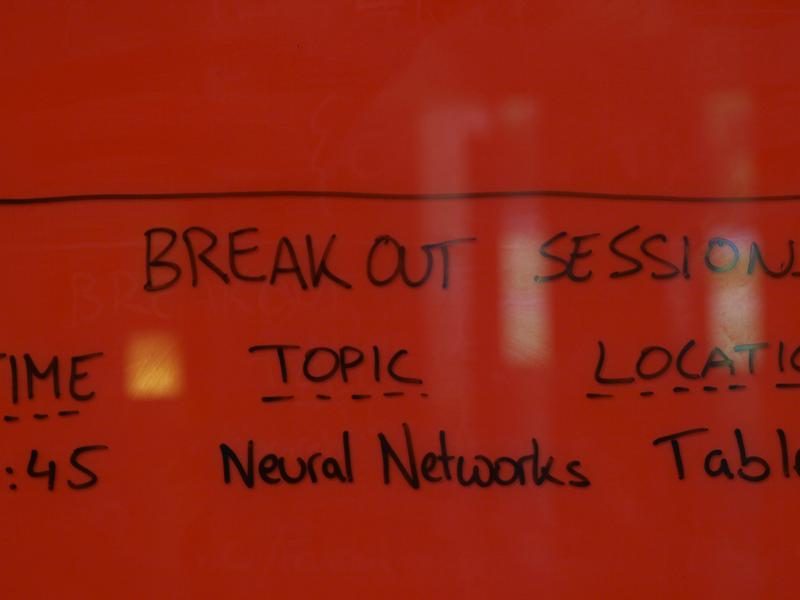 BREAK OUT SESSIONS
TIME TOPIC LOCATIO
:45 Neural Networks Table